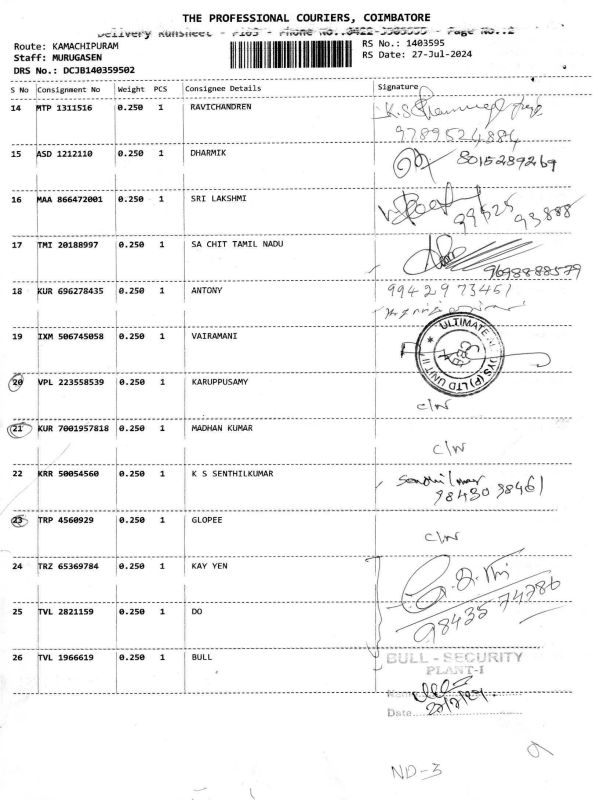 THE PROFESSIONAL COURIERS, COIMBATORE
Delivery Runsheet - Page No.:2
Route: KAMACHIPURAM RS No.: 1403595
Staff: MURUGASEN RS Date: 27-Jul-2024
DRS No.: DCJB140359502
S No Consignment No Weight PCS Consignee Details Signature
14 MTP 1311516 0.250 1 RAVICHANDREN
9789524884
15 ASD 1212110 0.250 1 DHARMIK 8015289269
16 MAA 866472001 0.250 1 SRI LAKSHMI
99525 93888
17 TMI 20188997 0.250 1 SA CHIT TAMIL NADU
9698888579
18 KUR 696278435 0.250 1 ANTONY 9942973461
19 IXM 506745058 0.250 1 VAIRAMANI
ULTIMATE (P) LTD UNIT II
20 VPL 223558539 0.250 1 KARUPPUSAMY
C/W
21 KUR 7001957818 0.250 1 MADHAN KUMAR
C/W
22 KRR 50054560 0.250 1 K S SENTHILKUMAR
98430 98461
23 TRP 4560929 0.250 1 GLOPEE
C/W
24 TRZ 65369784 0.250 1 KAY YEN
98435 74786
25 TVL 2821159 0.250 1 DO
26 TVL 1966619 0.250 1 BULL
BULL - SECURITY
PLANT-I
Name
Date
ND-3